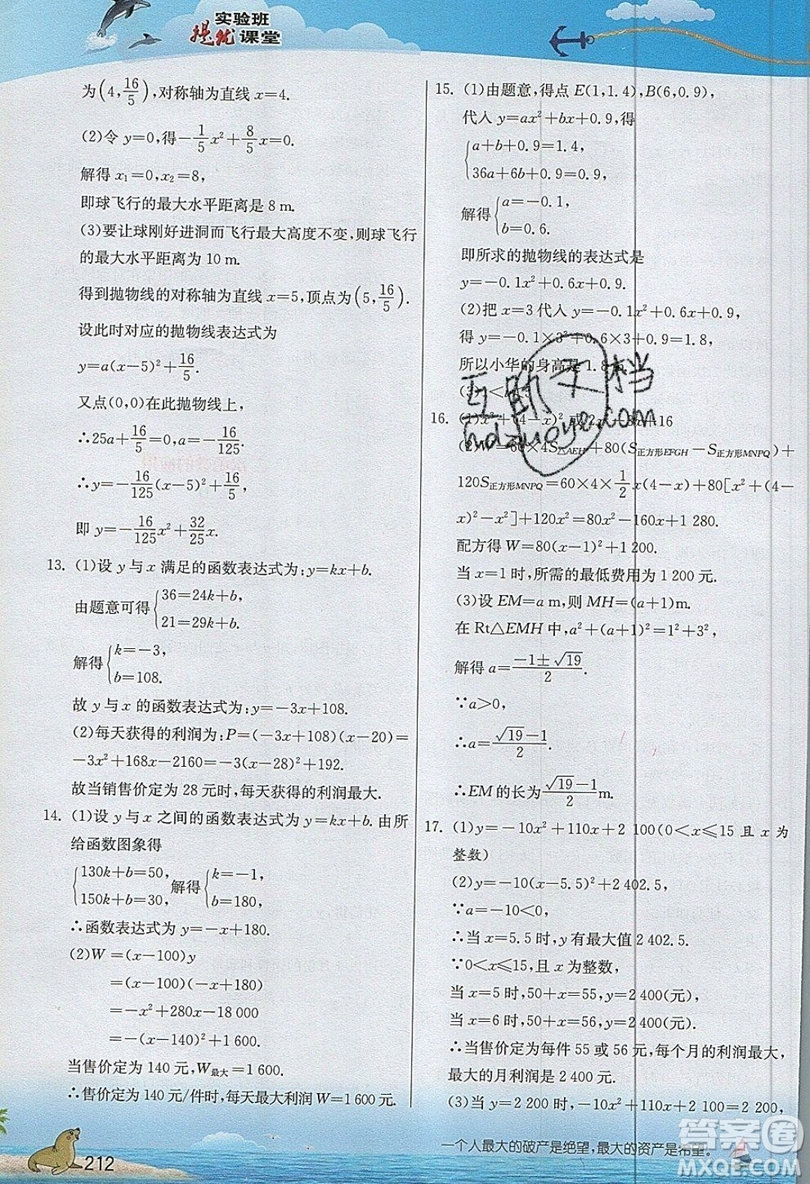 实验班
提优课堂
为(4,16/5),对称轴为直线 x=4.
(2)令 y=0,得-1/5x²+8/5x=0.
解得 x₁=0,x₂=8,
即球飞行的最大水平距离是 8 m.
(3)要让球刚好进洞而飞行最大高度不变,则球飞行
的最大水平距离为 10 m.
得到抛物线的对称轴为直线 x=5,顶点为(5,16/5).
设此时对应的抛物线表达式为
y=a(x-5)²+16/5.
又点(0,0)在此抛物线上,
∴25a+16/5=0,a=-16/125.
∴y=-16/125(x-5)²+16/5,
即 y=-16/125x²+32/25x.
13. (1)设 y 与 x 满足的函数表达式为:y=kx+b.
由题意可得{36=24k+b,
21=29k+b,
解得{k=-3,
b=108.
故 y 与 x 的函数表达式为:y=-3x+108.
(2)每天获得的利润为:P=(-3x+108)(x-20)=
-3x²+168x-2160=-3(x-28)²+192.
故当销售价定为 28 元时,每天获得的利润最大.
14. (1)设 y 与 x 之间的函数表达式为 y=kx+b.由所
给函数图象得
{130k+b=50,
150k+b=30, 解得{k=-1,
b=180.
∴函数表达式为 y=-x+180.
(2)W=(x-100)y
=(x-100)(-x+180)
=-x²+280x-18 000
=-(x-140)²+1 600.
当售价定为 140 元,W最大=1 600.
∴售价定为 140 元/件时,每天最大利润 W=1 600 元.
212
15. (1)由题意,得点 E(1,1.4),B(6,0.9),
代入 y=ax²+bx+0.9,得
{a+b+0.9=1.4,
36a+6b+0.9=0.9.
解得{a=-0.1,
b=0.6.
即所求的抛物线的表达式是
y=-0.1x²+0.6x+0.9.
(2)把 x=3 代入 y=-0.1x²+0.6x+0.9,
得 y=-0.1×3²+0.6×3+0.9=1.8,
所以小华的身高是 1.8
互助文档
hdzuoye.com
16. (1)x²+(4-x)² 或 2x²-8x+16
(2)W=60×4S△AEH+80(S正方形EFGH-S正方形MNPQ)+
120S正方形MNPQ=60×4×1/2x(4-x)+80[x²+(4-
x)²-x²]+120x²=80x²-160x+1 280.
配方得 W=80(x-1)²+1 200.
当 x=1 时,所需的最低费用为 1 200 元.
(3)设 EM=a m,则 MH=(a+1)m.
在 Rt△EMH 中,a²+(a+1)²=3²,
解得 a=(-1±√19)/2.
∵a>0,
∴a=(√19-1)/2.
∴EM 的长为(√19-1)/2 m.
17. (1)y=-10x²+110x+2 100(0<x≤15 且 x 为
整数)
(2)y=-10(x-5.5)²+2 402.5,
∵a=-10<0,
∴当 x=5.5 时,y 有最大值 2 402.5.
∵0<x≤15,且 x 为整数,
当 x=5 时,50+x=55,y=2 400(元),
当 x=6 时,50+x=56,y=2 400(元),
∴当售价定为每件 55 或 56 元,每个月的利润最大,
最大的月利润是 2 400 元.
(3)当 y=2 200 时,-10x²+110x+2 100=2 200,
一个人最大的破产是绝望,最大的资产是希望。
答案圈
MXQE.COM